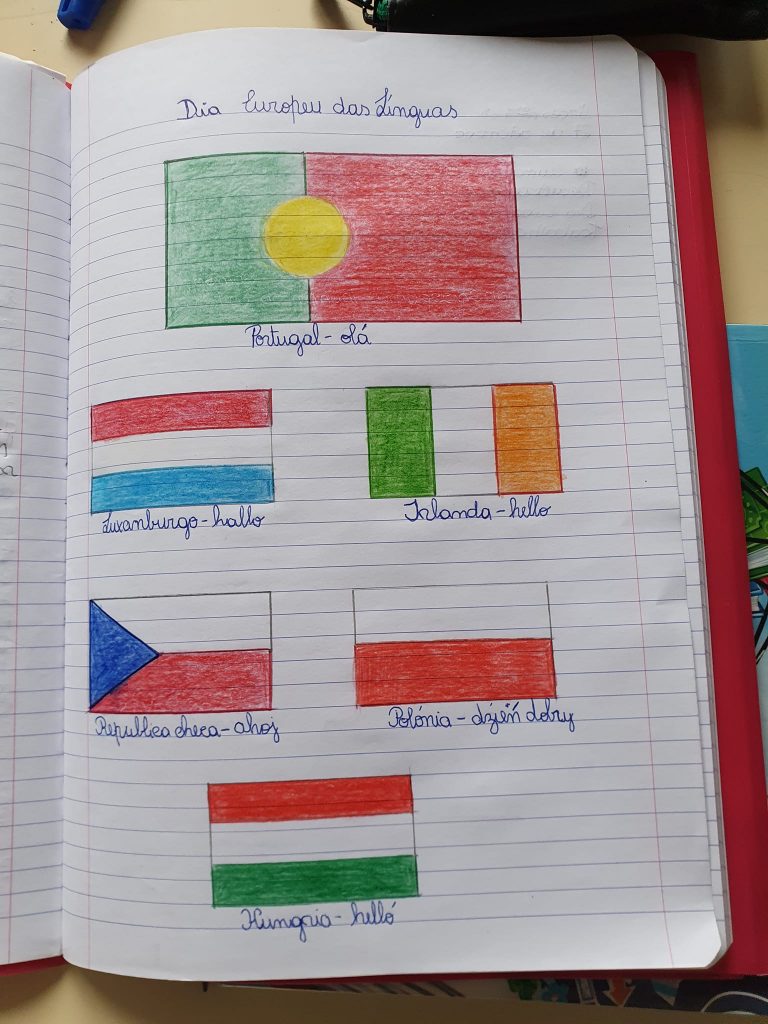 Dia Europeu das Línguas
Portugal - olá
Luxanburgo - hallo
Irlanda - hello
Republica checa - ahoj
Polónia - dzień dobry
Hungria - helló